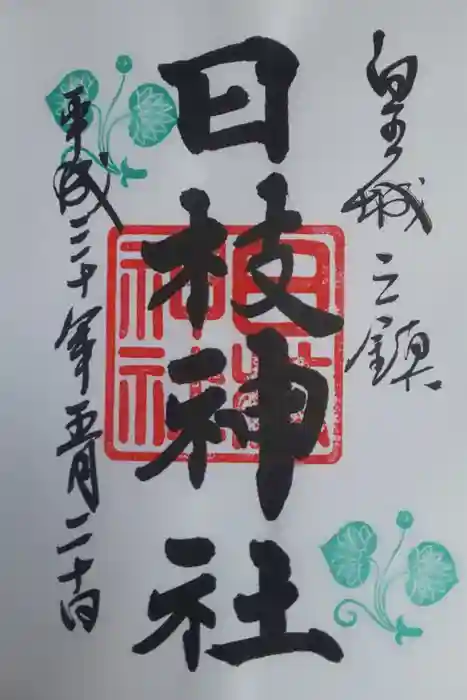 皇城之鎮
日枝神社
平成三十年五月二十日